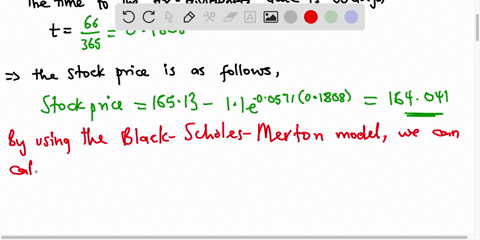 The time to the ex-dividend date is 66 days,
t = 66/365 = 0.1808
⇒ the stock price is as follows,
Stock price = 165.13 - 1.1e^-0.0571(0.1808) = 164.041
By using the Black-Scholes-Merton model, we can
cal